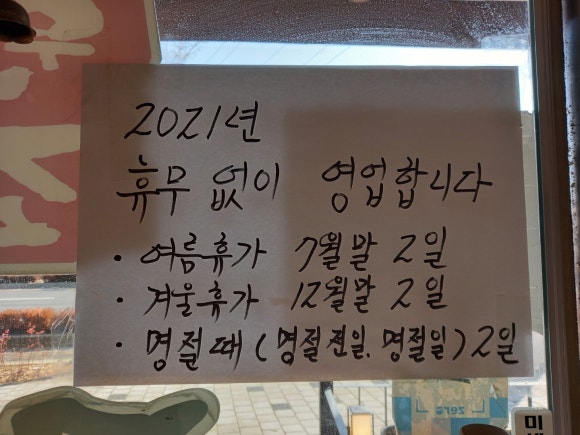 2021년
휴무 없이 영업합니다
· 여름휴가 7월말 2일
· 겨울휴가 12월말 2일
· 명절때 (명절전일, 명절일) 2일
zero